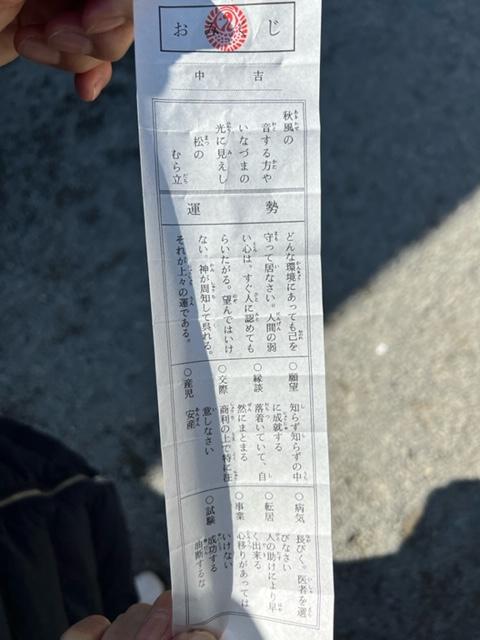 お じ
中 吉
秋風の
音する方や
いなづまの
光に見えし
松の
むら立
運 勢
どんな環境にあっても己を
守って居なさい。人間の弱
い心は、すぐ人に認めても
らいたがる。望んではいけ
ない。神が周知して呉れる。
それが上々の運である。
○願望
知らず知らずの中
に成就する
○縁談
落着いていて、自
然にまとまる
○交際
商利の上で特に注
意しなさい
○産児
安産
○病気
長びく。医者を選
びなさい
○転居
人の助けにより早
く出来る
○事業
心移りがあっては
いけない
○試験
成功する
油断するな